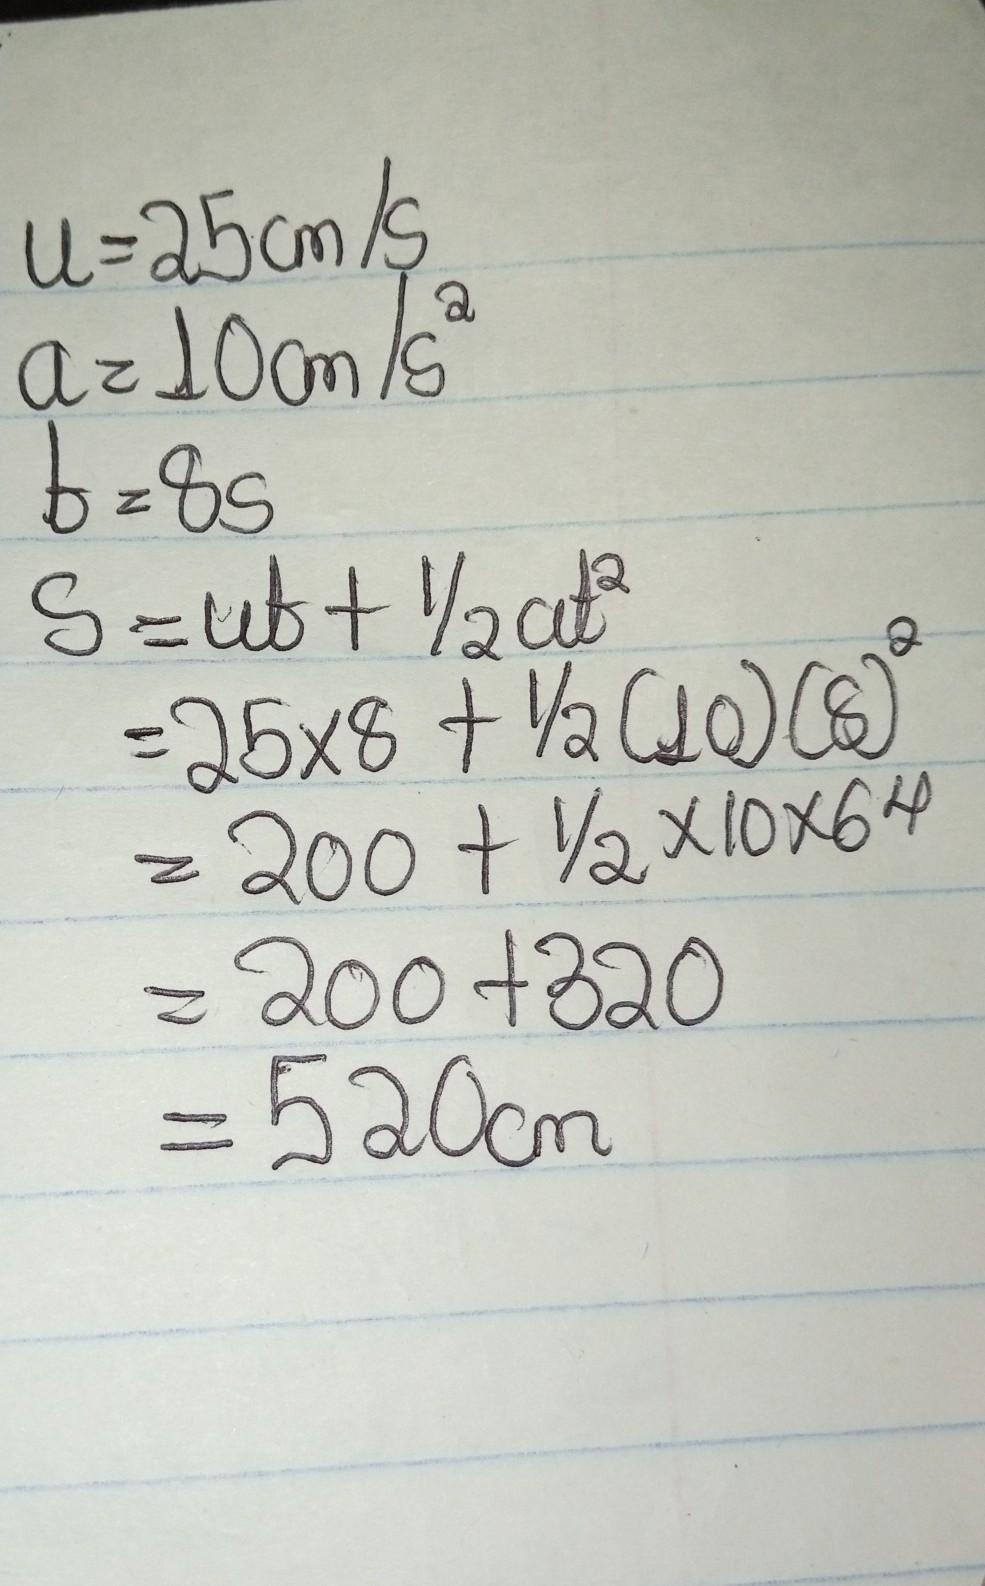 u=25cm/s
a=10cm/s²
t=8s
S=ut+½at²
=25×8+½(10)(8)²
=200+½×10×64
=200+320
=520cm